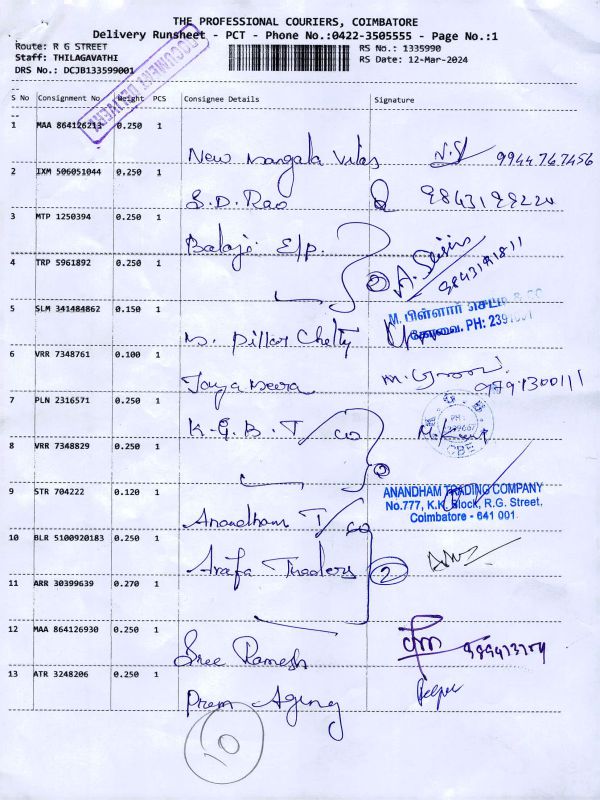 THE PROFESSIONAL COURIERS, COIMBATORE
Delivery Runsheet - PCT - Phone No.:0422-3505555 - Page No.:1
Route: R G STREET
Staff: THILAGAVATHI
DRS No.: DCJB133599001
RS No.: 1335990
RS Date: 12-Mar-2024
DOCUMENT DELIVERY
S No Consignment No Weight PCS Consignee Details Signature
1 MAA 864126213 0.250 1
New Mangala Vilas N.S 9944767456
2 IXM 506051044 0.250 1
S.D. Rao 9843199224
3 MTP 1250394 0.250 1
Balaji E/p. 9843191811
4 TRP 5961892 0.250 1
2
5 SLM 341484862 0.150 1
M. Pillar Chetty
M. பிள்ளார் செட்டி & CO
கோவை. PH: 2391
6 VRR 7348761 0.100 1
Jaya Meera 9791300111
7 PLN 2316571 0.250 1
K.G.B. T co
CBE
8 VRR 7348829 0.250 1
2
9 STR 704222 0.120 1
Anandham T co
ANANDHAM TRADING COMPANY
No.777, K.K. Block, R.G. Street,
Coimbatore - 641 001
10 BLR 5100920183 0.250 1
Arafa Traders 2
11 ARR 30399639 0.270 1
12 MAA 864126930 0.250 1
Sree Ramesh
13 ATR 3248206 0.250 1
Prem Aging
10